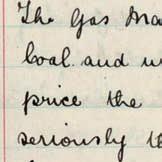 The Gas Ma
Coal and w
price the
seriously th